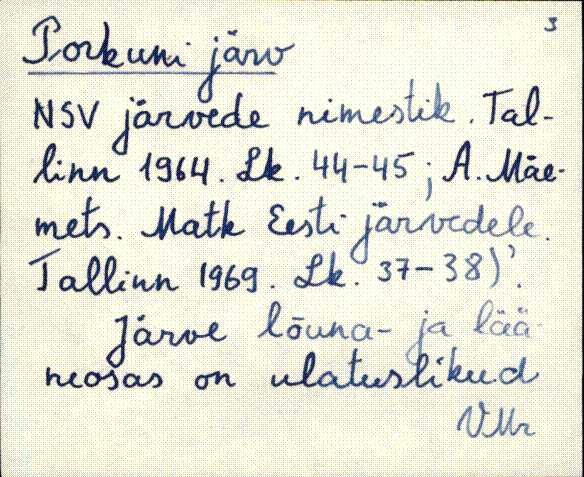 3
Porkuni järv
NSV järvede nimestik. Tal-
linn 1964. Lk. 44-45; A. Mäe-
mets. Matk Eesti järvedele.
Tallinn 1969. Lk. 37-38)'.
Järve lõuna- ja lää-
neosas on ulatuslikud
VMr